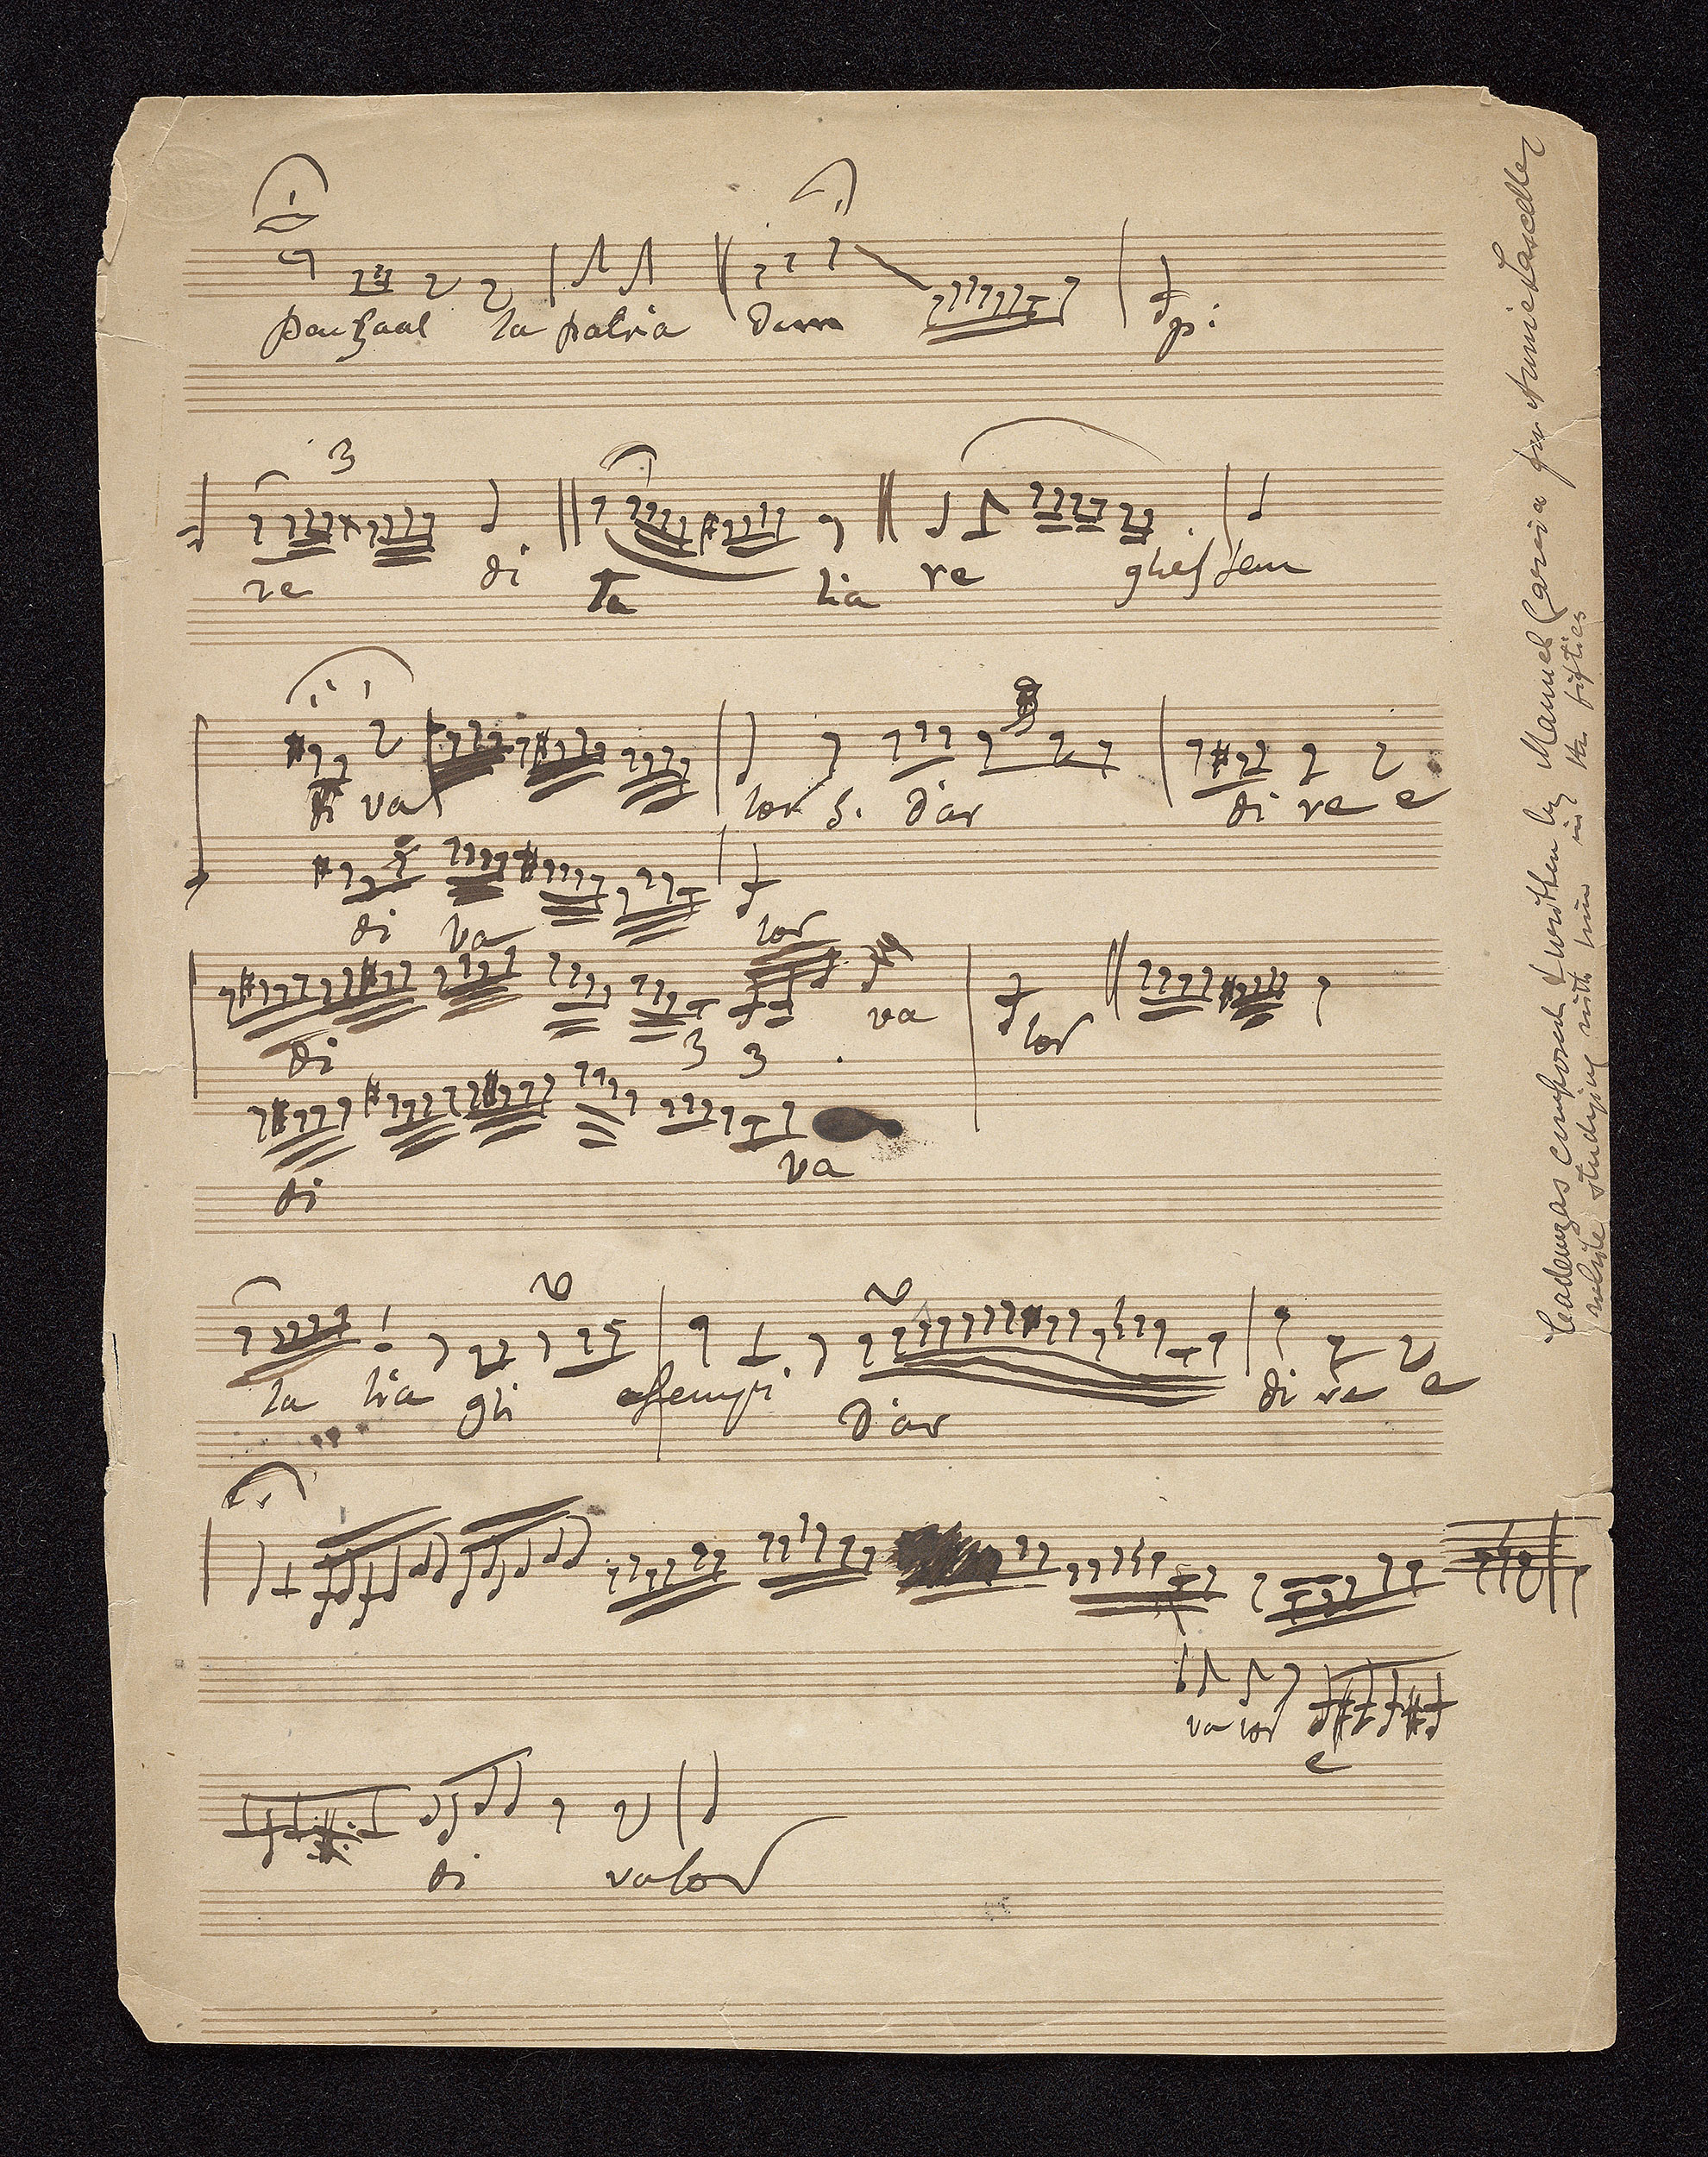 la patria Dim
p:
3
re di ta lia re ghes sem
di va lor s. d'ar di re e
di va lor
di va lor
3 3
di va
ta lia gli esempi d'ar di re e
va lor e
di valor
Cadenzas composed & written by Manuel Garcia for Annie
while studying with him in the fifties